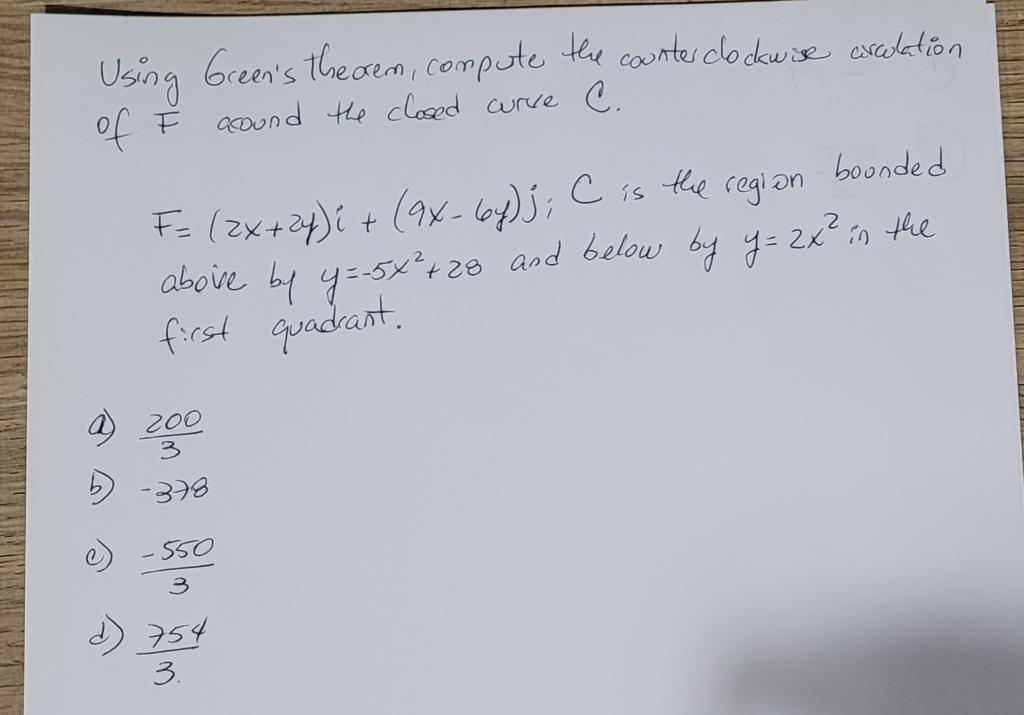 Using Green's theorem, compute the counterclockwise circulation
of F around the closed curve C.
F= (2x+2y)i + (9x-6y)j; C is the region bounded
above by y=-5x²+28 and below by y=2x² in the
first quadrant.
a) 200/3
b) -378
c) -550/3
d) 754/3.